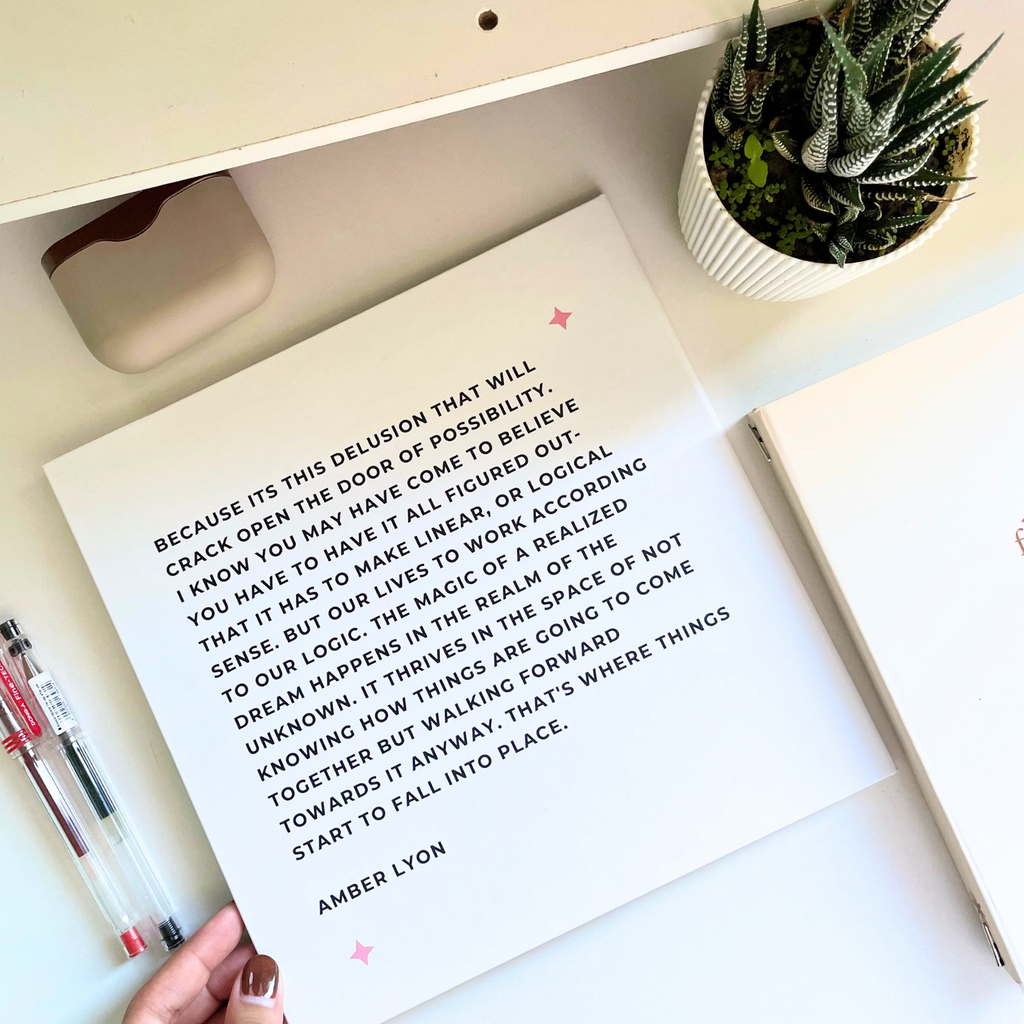 BECAUSE ITS THIS DELUSION THAT WILL
CRACK OPEN THE DOOR OF POSSIBILITY.
I KNOW YOU MAY HAVE COME TO BELIEVE
YOU HAVE TO HAVE IT ALL FIGURED OUT-
THAT IT HAS TO MAKE LINEAR, OR LOGICAL
SENSE. BUT OUR LIVES TO WORK ACCORDING
TO OUR LOGIC. THE MAGIC OF A REALIZED
DREAM HAPPENS IN THE REALM OF THE
UNKNOWN. IT THRIVES IN THE SPACE OF NOT
KNOWING HOW THINGS ARE GOING TO COME
TOGETHER BUT WALKING FORWARD
TOWARDS IT ANYWAY. THAT'S WHERE THINGS
START TO FALL INTO PLACE.
AMBER LYON